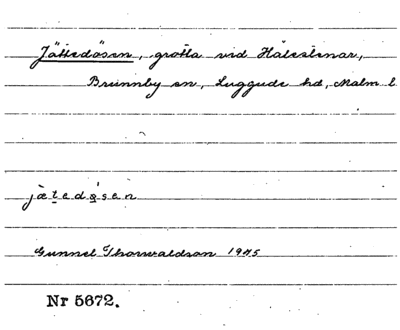 Jättedösen, grotta vid Hålestenar,
Brunnby sn, Luggude hd, Malm l
jætedɷsen
Gunnel Thorwaldson 1945
Nr 5672.